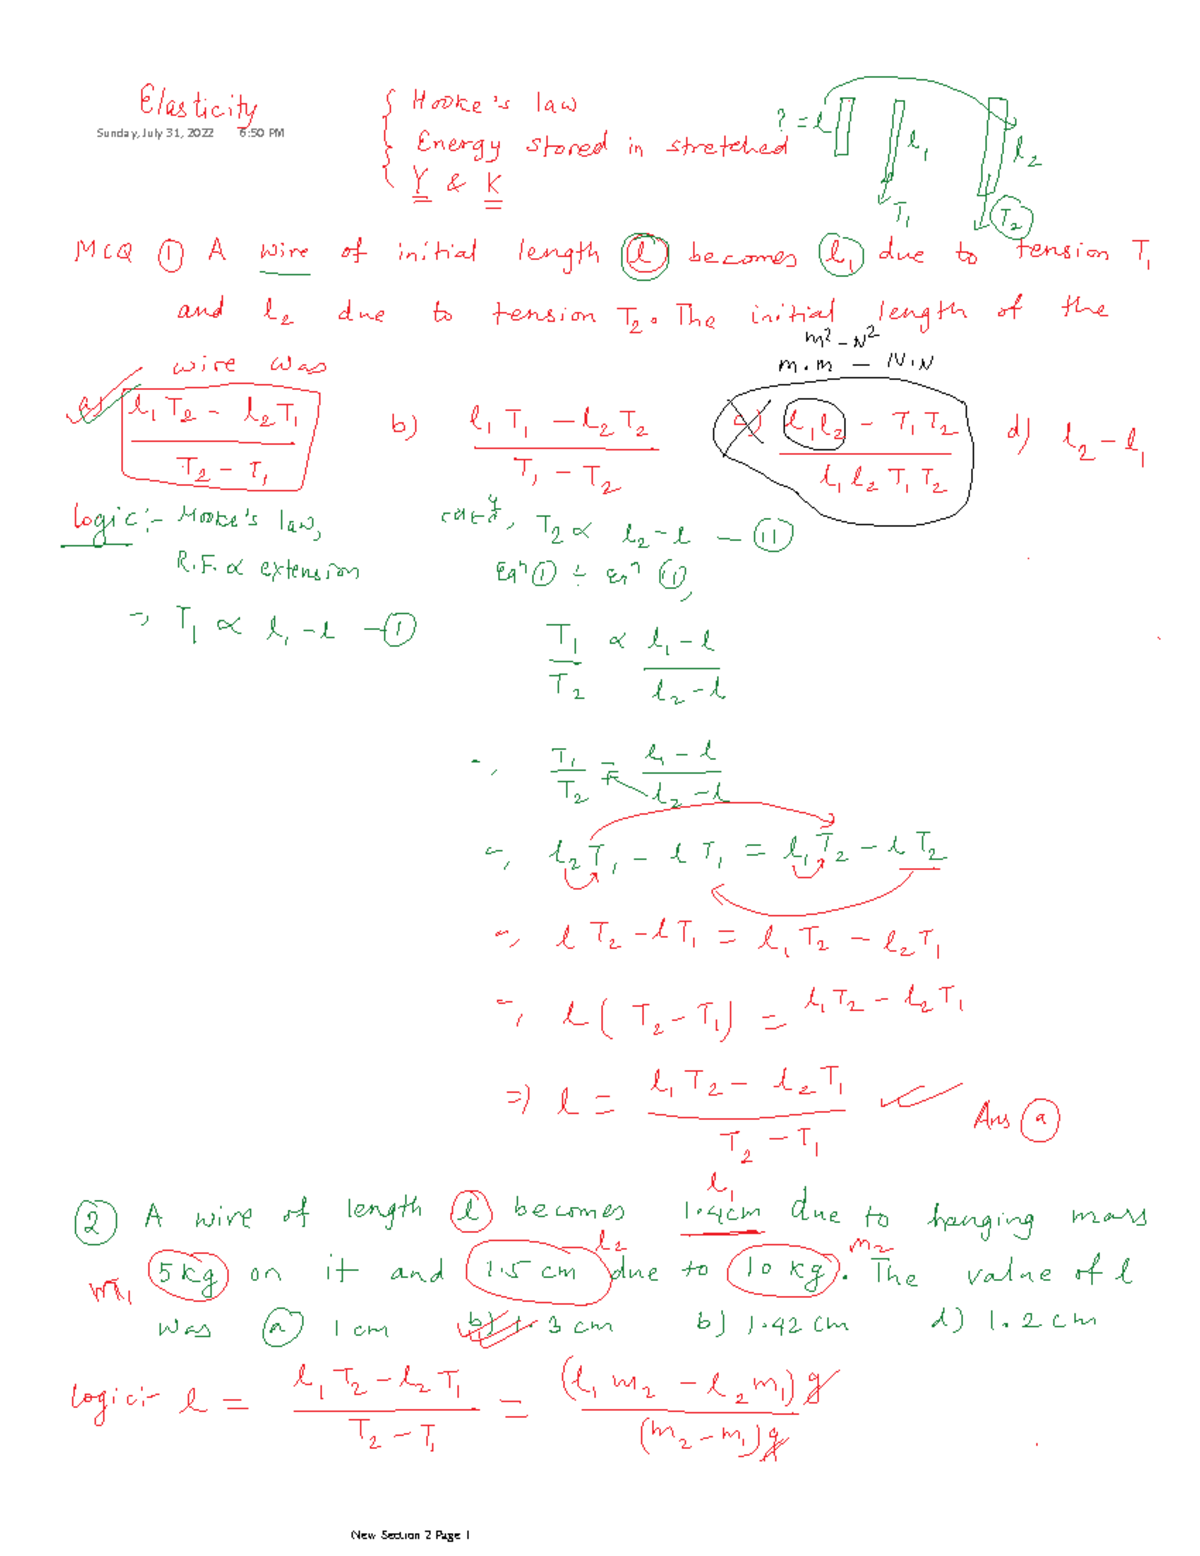 Elasticity
Sunday, July 31, 2022 6:50 PM
{ Hooke's law
Energy stored in stretched
Y & K
? = l
l₁
l₂
T₁
T₂
MCQ ① A wire of initial length l becomes l₁ due to tension T₁
and l₂ due to tension T₂. The initial length of the
wire was
m² - N²
m.m - N.N
a) (l₁T₂ - l₂T₁) / (T₂ - T₁) b) (l₁T₁ - l₂T₂) / (T₁ - T₂) c) (l₁l₂ - T₁T₂) / (l₁l₂T₁T₂) d) l₂ - l₁
Logic:- Hooke's law,
R.F. ∝ extension
⇒ T₁ ∝ l₁ - l — ①
T₂ ∝ l₂ - l — ⑪
Eqⁿ ① ÷ Eqⁿ ⑪,
T₁/T₂ ∝ (l₁ - l)/(l₂ - l)
⇒ T₁/T₂ = (l₁ - l)/(l₂ - l)
⇒ l₂T₁ - lT₁ = l₁T₂ - lT₂
⇒ lT₂ - lT₁ = l₁T₂ - l₂T₁
⇒ l(T₂ - T₁) = l₁T₂ - l₂T₁
⇒ l = (l₁T₂ - l₂T₁) / (T₂ - T₁) Ans ⓐ
l₁
② A wire of length l becomes 1.4cm due to hanging mass
l₂ m₂
m₁ 5kg on it and 1.5 cm due to 10 kg. The value of l
was a) 1 cm b) 1.3 cm b) 1.42 cm d) 1.2 cm
Logic:- l = (l₁T₂ - l₂T₁) / (T₂ - T₁) = (l₁m₂ - l₂m₁)g / (m₂ - m₁)g
New Section 2 Page 1